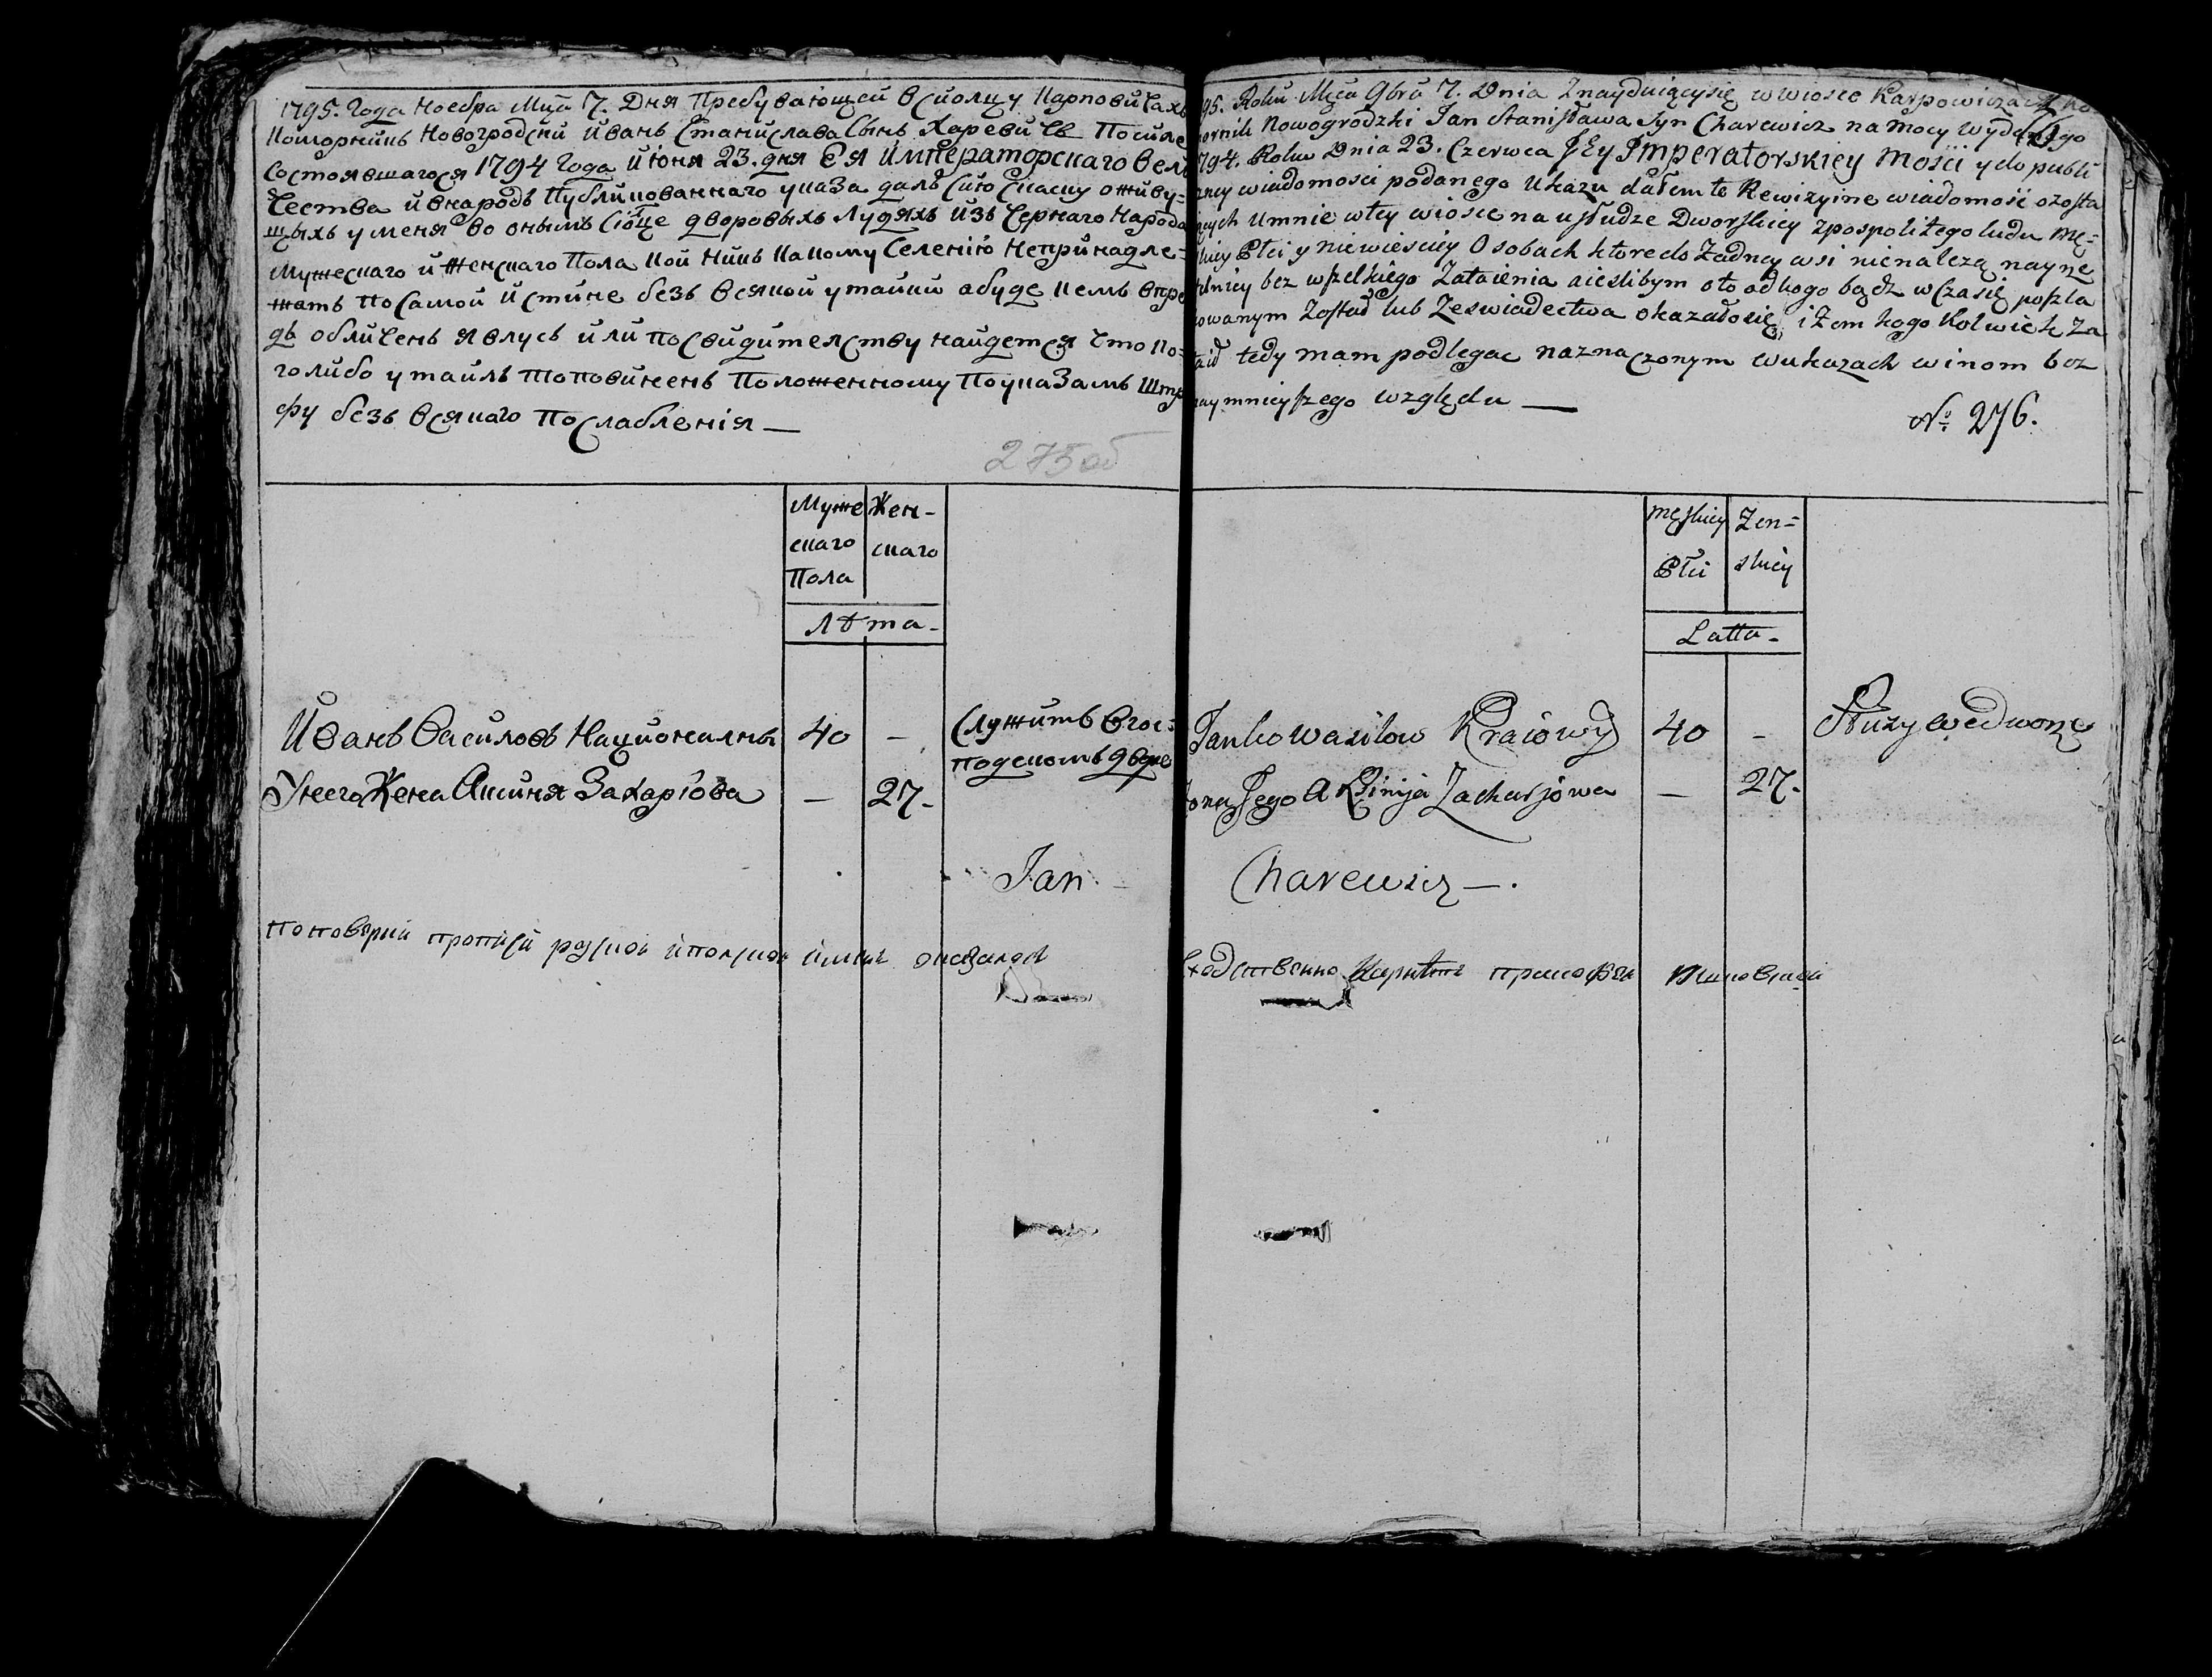 1795. Года Ноебра Мца 7. Дня Пребувающей в сиолцу Карповичахъ
Коморникъ Новогродски Иванъ Станислава Сынъ Харевичъ По силе
Состоявшагося 1794 Года Июня 23. дня Ея Императорскаго Вели
чества и внародъ Публикованнаго указа далъ сию скаску о живу-
щыхъ у меня во онымъ сiоце дворовыхъ Лудяхъ изъ Чернаго Народа
Мужескаго и Женскаго Пола кои никъ какому Селению Непринадле-
жатъ по Самой Истине безъ всякой утайки а буде кемъ впре
дъ обличенъ явлусь или по свидителству найдется что ко-
голибо утаилъ то повиненъ Положенному По указамъ Штра
фу безъ всякаго Послабленiя —
275об
Муже Жен-
скаго скаго
Пола
Лѣта-
Иванъ Василовъ Националны 40 — Служитъ в гос=
подскомъ дворе
У него Жена Аксиня Захарiова — 27-
Jan
по поверки прописи руской и полской имъ оказалось
95. Roku Męca 9bra 7. Dnia Znayduiącysię w wiosce Karpowiczach Ko
mornik Nowogrodzki Jan Stanisława Syn Charewicz na mocy wydanego
1794. Roku Dnia 23. Czerwca JEy Imperatorskiey Mości y do publi
czney wiadomosci podanego Ukazu dałem te Rewizyine wiadomość o zosta
iących umnie wtey wiosce na usłudze Dworskiey zpospolitego ludu Mę=
skiey Płci y niewiesciey Osobach ktore do Żadney wsi nienależą nayrze
telniey bez wszelkiego Zataienia a iesliby m oto odkogo bądz w Czasię poszla
kowanym Został lub Zeswiadectwa okazałosię, iżem kogo Kolwiek Za
taił tedy mam podlegac naznaczonym wukazach winom bez
naymnieyszego względu —
№ 276.
Męskiey Żen=
Płci skiey
Latta-
Janko Wasilow Kraiowy 40 — Służy we dworze
Żona Jego Axinija Zacharjowa — 27.
Charewicz —.